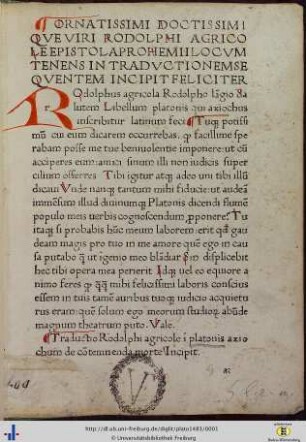 ORNATISSIMI DOCTISSIMI
QVE VIRI RODOLPHI AGRICO
LE EPISTOLA PROHEMII LOCVM
TENENS IN TRADVCTIONEM SE
QVENTEM INCIPIT FELICITER
ROdolphus agricola Rodolpho lāgio sa
lutem Libellum platonis qui axiochus
inscribitur latinum feci Tuq; ponssi
mū cui eum dicarem occurrebas. q facillime spe
rabam posse me tue beniuolentie imponere: ut cū
acciperes eum: amici sinum illi non iudicis super
cilium offerres Tibi igitur atq; adeo uni tibi illū
dicaui Vnde nanq; tantum mihi fiducie: ut audeā
immēsum illud diuinumq; Platonis dicendi flumē
populo meis uerbis cognoscendum pponere: Tu
itaq; si probabis hūc meum laborem: erit qd gau
deam magis pro tuo in me amore quē ego in cau
sa putabo q ut igenio meo blādiar Sin displicebit
hec tibi opera mea perierit Idq; uel eo equiore a
nimo feres q q̄q̄ mihi felicissimi laboris conscius
essem in tuis tamē auribus tuoq; iudicio acquietu
rus eram: quē solum ego meorum studioȝ abūde
magnum theatrum puto. Vale.
Traductio Rodolphi agricole i platonis axio
chum de cōtemnenda morte Incipit.
V
http://dl.ub.uni-freiburg.de/diglit/plato1483/0001
© Universitätsbibliothek Freiburg